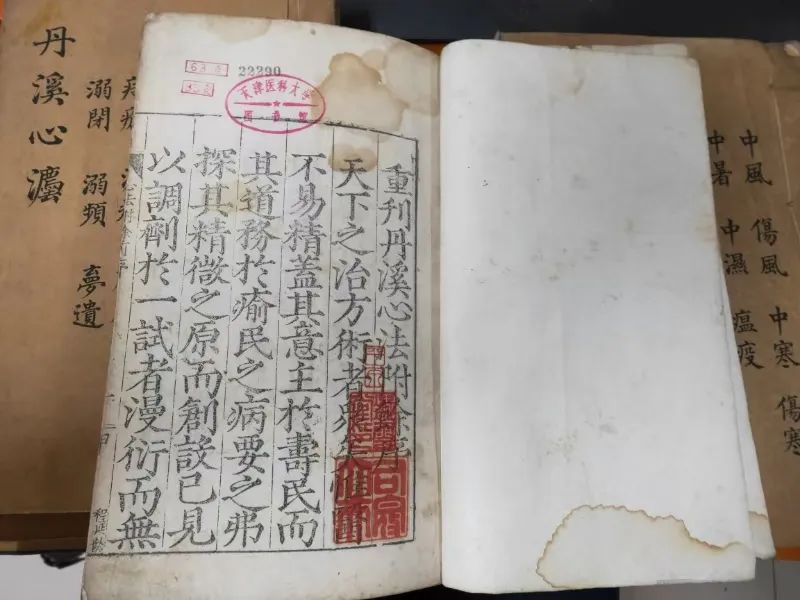 22290
天津医科大学
重刊丹溪心法附餘序
天下之治方術者衆矣惟醫
不易精蓋其意主於壽民而
其道務於瘉民之病要之弗
探其精微之原而創設已見
以調劑於一試者漫衍而無
丹溪心灋
溺閉 溺頻 夢遺
中風 傷風 中寒 傷寒
中暑 中濕 瘟疫